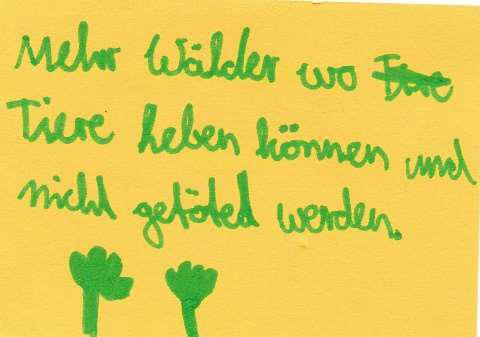 Mehr Wälder wo Tire
Tiere heben können und
nicht getöted werden.